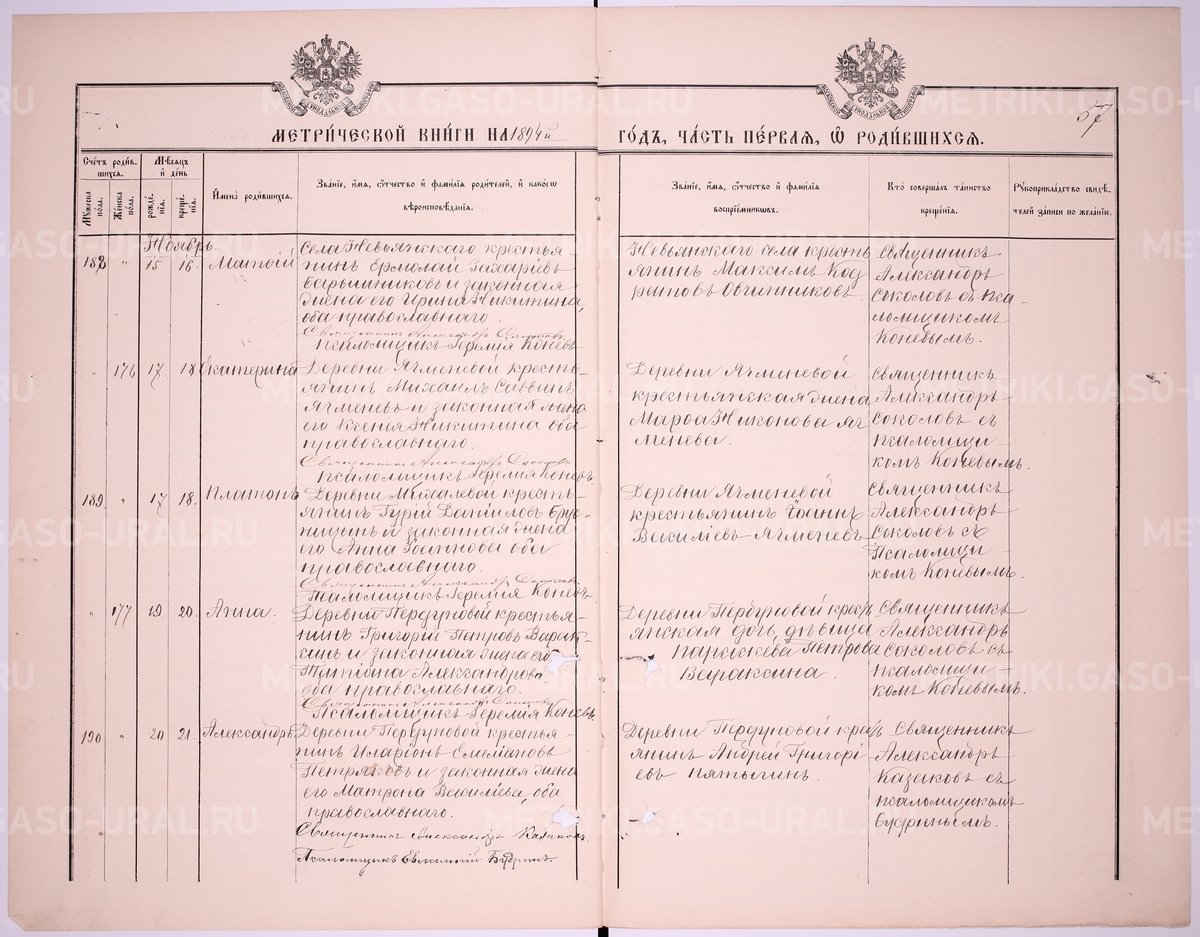 МЕТРИ́ЧЕСКОЙ КНИ́ГИ НА 1894й
ГО́ДЪ, ЧА́СТЬ ПЕ́РВАЯ, Ѡ РОДИ́ВШИХСЯ.
57
Сче́тъ роди́в-
шихся.
Мѣ́сяцъ
и҆ де́нь
Мꙋ́жеска
по́ла.
Же́нска
по́ла.
рожде́-
нїя.
креще́-
нїя.
И҆мена̀ роди́вшихся.
Зва́нїе, и҆́мя, ѻ҆́тчество и҆ фами́лїа роди́телей, и҆ како́гѡ
вѣроисповѣ́данїя.
Зва́нїе, и҆́мя, ѻ҆́тчество и҆ фами́лїа
воспрїе́мникѡвъ.
Кто̀ соверша́лъ та́инство
креще́нїя.
Рꙋкоприкла́дство свидѣ́-
телей за́писи по жела́нїю.
Ноябрь
188 " 15 16. Матфій
Села Невьянскаго крестья-
нинъ Ермолай Захаріевъ
и законная
жена его Ирина Никитина,
оба православнаго.
Священникъ Александръ Соколовъ
Псаломщикъ Іеремія Коневъ
Невьянскаго села кресть
янинъ Максимъ Код
ратовъ Овчинниковъ.
Священникъ
Александръ
Соколовъ съ пса-
ломщикомъ
Коневымъ.
" 176 17 18 Екатерина
Деревни Ячменевой кресть-
янинъ Михаилъ Саввинъ
Ячменевъ и законная жена
его Ксенія Никитина оба
православнаго.
Священникъ Александръ Соколовъ
Псаломщикъ Іеремія Коневъ
Деревни Ячменевой
крестьянская жена
Марѳа Никонова Яч
менева.
Священникъ
Александръ
Соколовъ съ
псаломщи-
комъ Коневымъ.
189 " 17 18. Платонъ
Деревни Михалевой кресть-
янинъ Гурій Даниловъ Брус-
ницынъ и законная жена
его Анна Іоаннова оба
православнаго.
Священникъ Александръ Соколовъ
Псаломщикъ Іеремія Коневъ
Деревни Ячменевой
крестьянинъ Іоаннъ
Василіевъ Ячменевъ
Священникъ
Александръ
Соколовъ съ
Псаломщи-
комъ Коневымъ.
" 177 19 20. Анна.
Деревни Пердуновой крестья-
нинъ Григорій Петровъ Варак-
синъ и законная жена его
Татіана Александрова,
оба православнаго.
Священникъ Александръ Соколовъ
Псаломщикъ Іеремія Коневъ
Деревни Пердуновой крест
янская дочь, дѣвица
Параскева Петрова
Вараксина.
Священникъ
Александръ
Соколовъ съ
псаломщи
комъ Коневымъ.
190 " 20 21. Александръ
Деревни Пердуновой крестья-
нинъ Иларіонъ Емеліановъ
Петряковъ и законная жена
его Матрона Василіева, оба
православнаго.
Священникъ Александръ Казаковъ.
Псаломщикъ Евгеній Будринъ.
Деревни Пердуновой крес
янинъ Андрей Григорі
евъ Пятыгинъ.
Священникъ
Александръ
Казаковъ съ
псаломщикомъ
Будринымъ.
METRIKI.GASO-URAL.RU